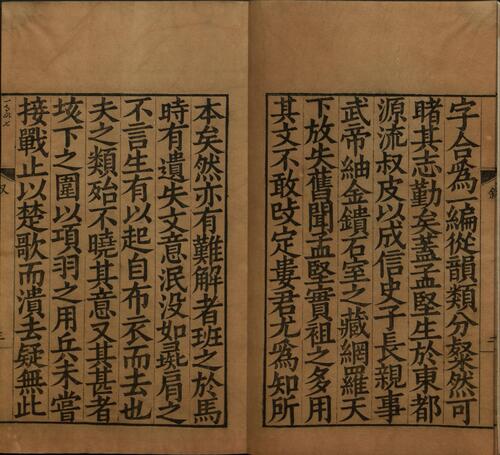 字合爲一編從韻類分粲然可
睹其志勤矣蓋孟堅生於東都
源流叔皮以成信史子長親事
武帝紬金鐀石室之藏網羅天
下放失舊聞孟堅實祖之多用
其文不敢改定婁君尤爲知所
本矣然亦有難解者班之於馬
時有遺失文意泯没如屍屑之
不言生有以起自布衣而去也
夫之類殆不曉其意又其甚者
垓下之圍以項羽之用兵未嘗
接戰止以楚歌而潰去疑無此